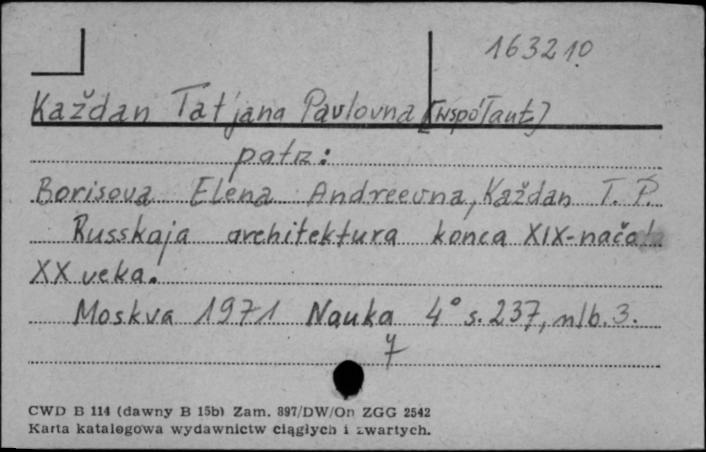 163210
Každan Tat'jana Pavlovna [współaut.]
patrz:
Borisova Elena Andreevna, Každan T. P.
Russkaja architektura konca XIX-načala
XX veka.
Moskva 1971 Nauka 4° s. 237, nlb. 3.
y
CWD B 114 (dawny B 15b) Zam. 897/DW/On ZGG 2542
Karta katalogowa wydawnictw ciągłych i zwartych.